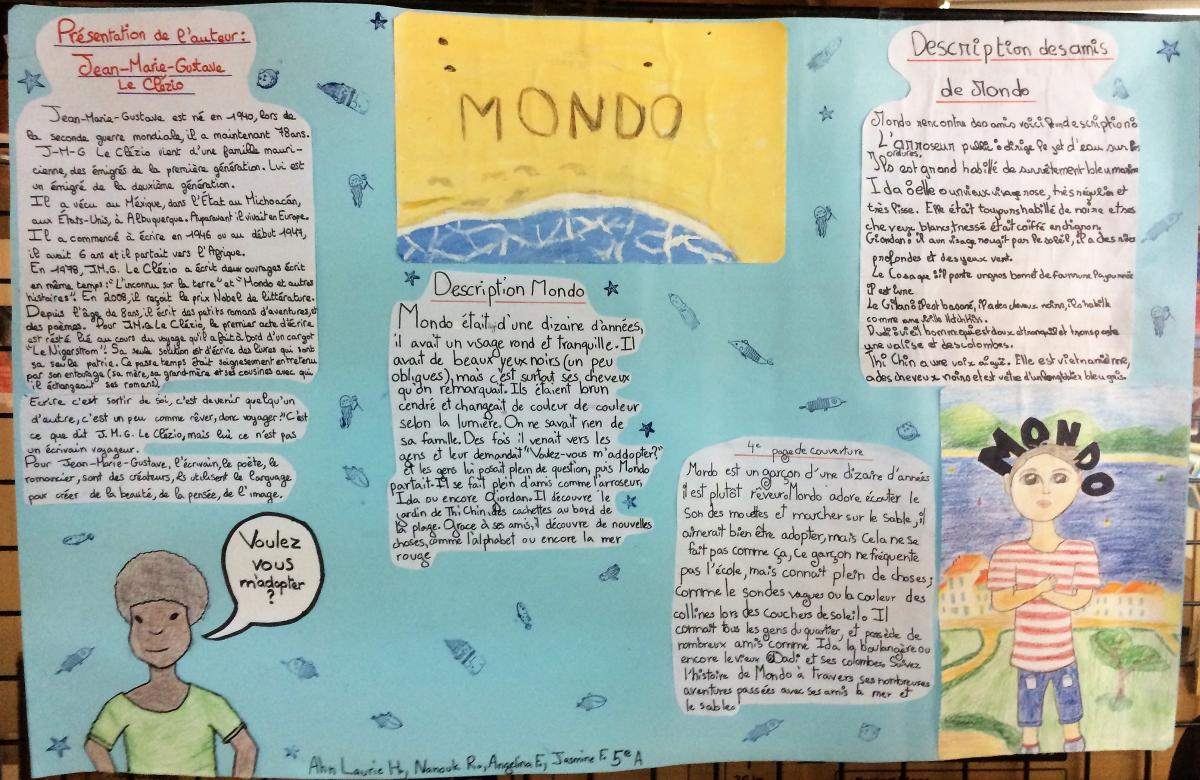 Présentation de l'auteur:
Jean-Marie-Gustave
Le Clézio
Jean-Marie-Gustave est né en 1940, lors de
la seconde guerre mondiale, il a maintenant 78ans.
J-M-G Le Clézio vient d'une famille mauri-
cienne, des émigrés de la première génération. Lui est
un émigré de la deuxième génération.
Il a vécu au Méxique, dans l'État au Michoacán,
aux États-Unis, à Albuquerque. Auparavant il vivait en Europe.
Il a commencé à écrire en 1946 ou au début 1947,
il avait 6 ans et il partait vers l'Afrique.
En 1978, J.M.G. Le Clézio a écrit deux ouvrages écrit
en même temps: "L'inconnu sur la terre" et "Mondo et autres
histoires". En 2008, il reçoit le prix Nobel de littérature.
Depuis l'âge de 8ans, il écrit des petits romans d'aventures, et
des poèmes. Pour J.M.G Le Clézio, le premier acte d'écrire
est resté lié au cours du voyage qu'il a fait à bord d'un cargot
"Le Nigerstrom". Sa seule solution est d'écrire des livres qui sont
sa seule patrie. Ce passe temps était soigneusement entretenu
par son entourage (sa mère, sa grand-mère et ses cousines avec qui
il échangeait ses romans).
"Ecrire c'est sortir de soi, c'est devenir quelqu'un
d'autre, c'est un peu comme rêver, donc voyager." C'est
ce que dit J.M.G. Le Clézio, mais lui ce n'est pas
un écrivain voyageur.
Pour Jean-Marie-Gustave, l'écrivain, le poète, le
romancier, sont des créateurs, ils utilisent le language
pour créer de la beauté, de la pensée, de l'image.
Voulez
vous
m'adopter
?
MONDO
Description Mondo
Mondo était d'une dizaire d'années,
il avait un visage rond et tranquille. Il
avait de beaux yeux noirs (un peu
obliques), mais c'est surtout ses cheveux
qu'on remarquait. Ils étaient brun
cendré et changeait de couleur de couleur
selon la lumière. On ne savait rien de
sa famille. Des fois il venait vers les
gens et leur demandait "Voulez-vous m'adopter?"
et les gens lui posait plein de question, puis Mondo
partait. Il se fait plein d'amis comme l'arroseur,
Ida ou encore Giordan. Il découvre le
jardin de Thi Chin, des cachettes au bord de
la plage. Grace à ses amis, il découvre de nouvelles
choses, comme l'alphabet ou encore la mer
rouge
Description des amis
de Mondo
Mondo rencontre des amis voici descriptions
L'arroseur public: dirige le jet d'eau sur les
ordures.
Ils est grand habillé de survêtement bleu marine
Ida: elle a un vieux visage rose, très régulier et
très lisse. Elle était toujours habillé de noire et ses
cheveux blancs tressé était coiffé en chignon.
Giordan: il a un visage rougit par le soleil, il a des rides
profondes et des yeux vert.
Le Cosaque: il porte un gros bonnet de fourrure
il est ivre
Le Gitan: il est basané, il a des cheveux noirs, il s'habille
comme
Dadi: vieil homme qui est doux et tranquil et transporte
une valise et des colombes.
Thi Chin a une voix aiguë. Elle est vietnamienne,
a des cheveux noirs et est vêtue d'un bleu gris.
4e page de couverture
Mondo est un garçon d'une dizaire d'années
il est plutôt rêveur. Mondo adore écouter le
son des mouettes et marcher sur le sable, il
aimerait bien être adopter, mais cela ne se
fait pas comme ça, ce garçon ne fréquente
pas l'école, mais connaît plein de choses;
comme le son des vagues ou la couleur des
collines lors des couchers de soleil. Il
connaît tous les gens du quartier, et possède de
nombreux amis comme Ida la boulangère ou
encore le vieux Dadi et ses colombes. Suivez
l'histoire de Mondo à travers ses nombreuses
aventures passées avec ses amis la mer et
le sable
MONDO
Ahn Laurie H, Nanouk R, Angelina F, Jasmine F. 5e A